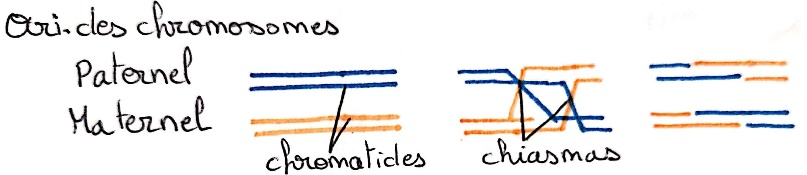 Ori. des chromosomes
Paternel
Maternel
chromatides
chiasmas